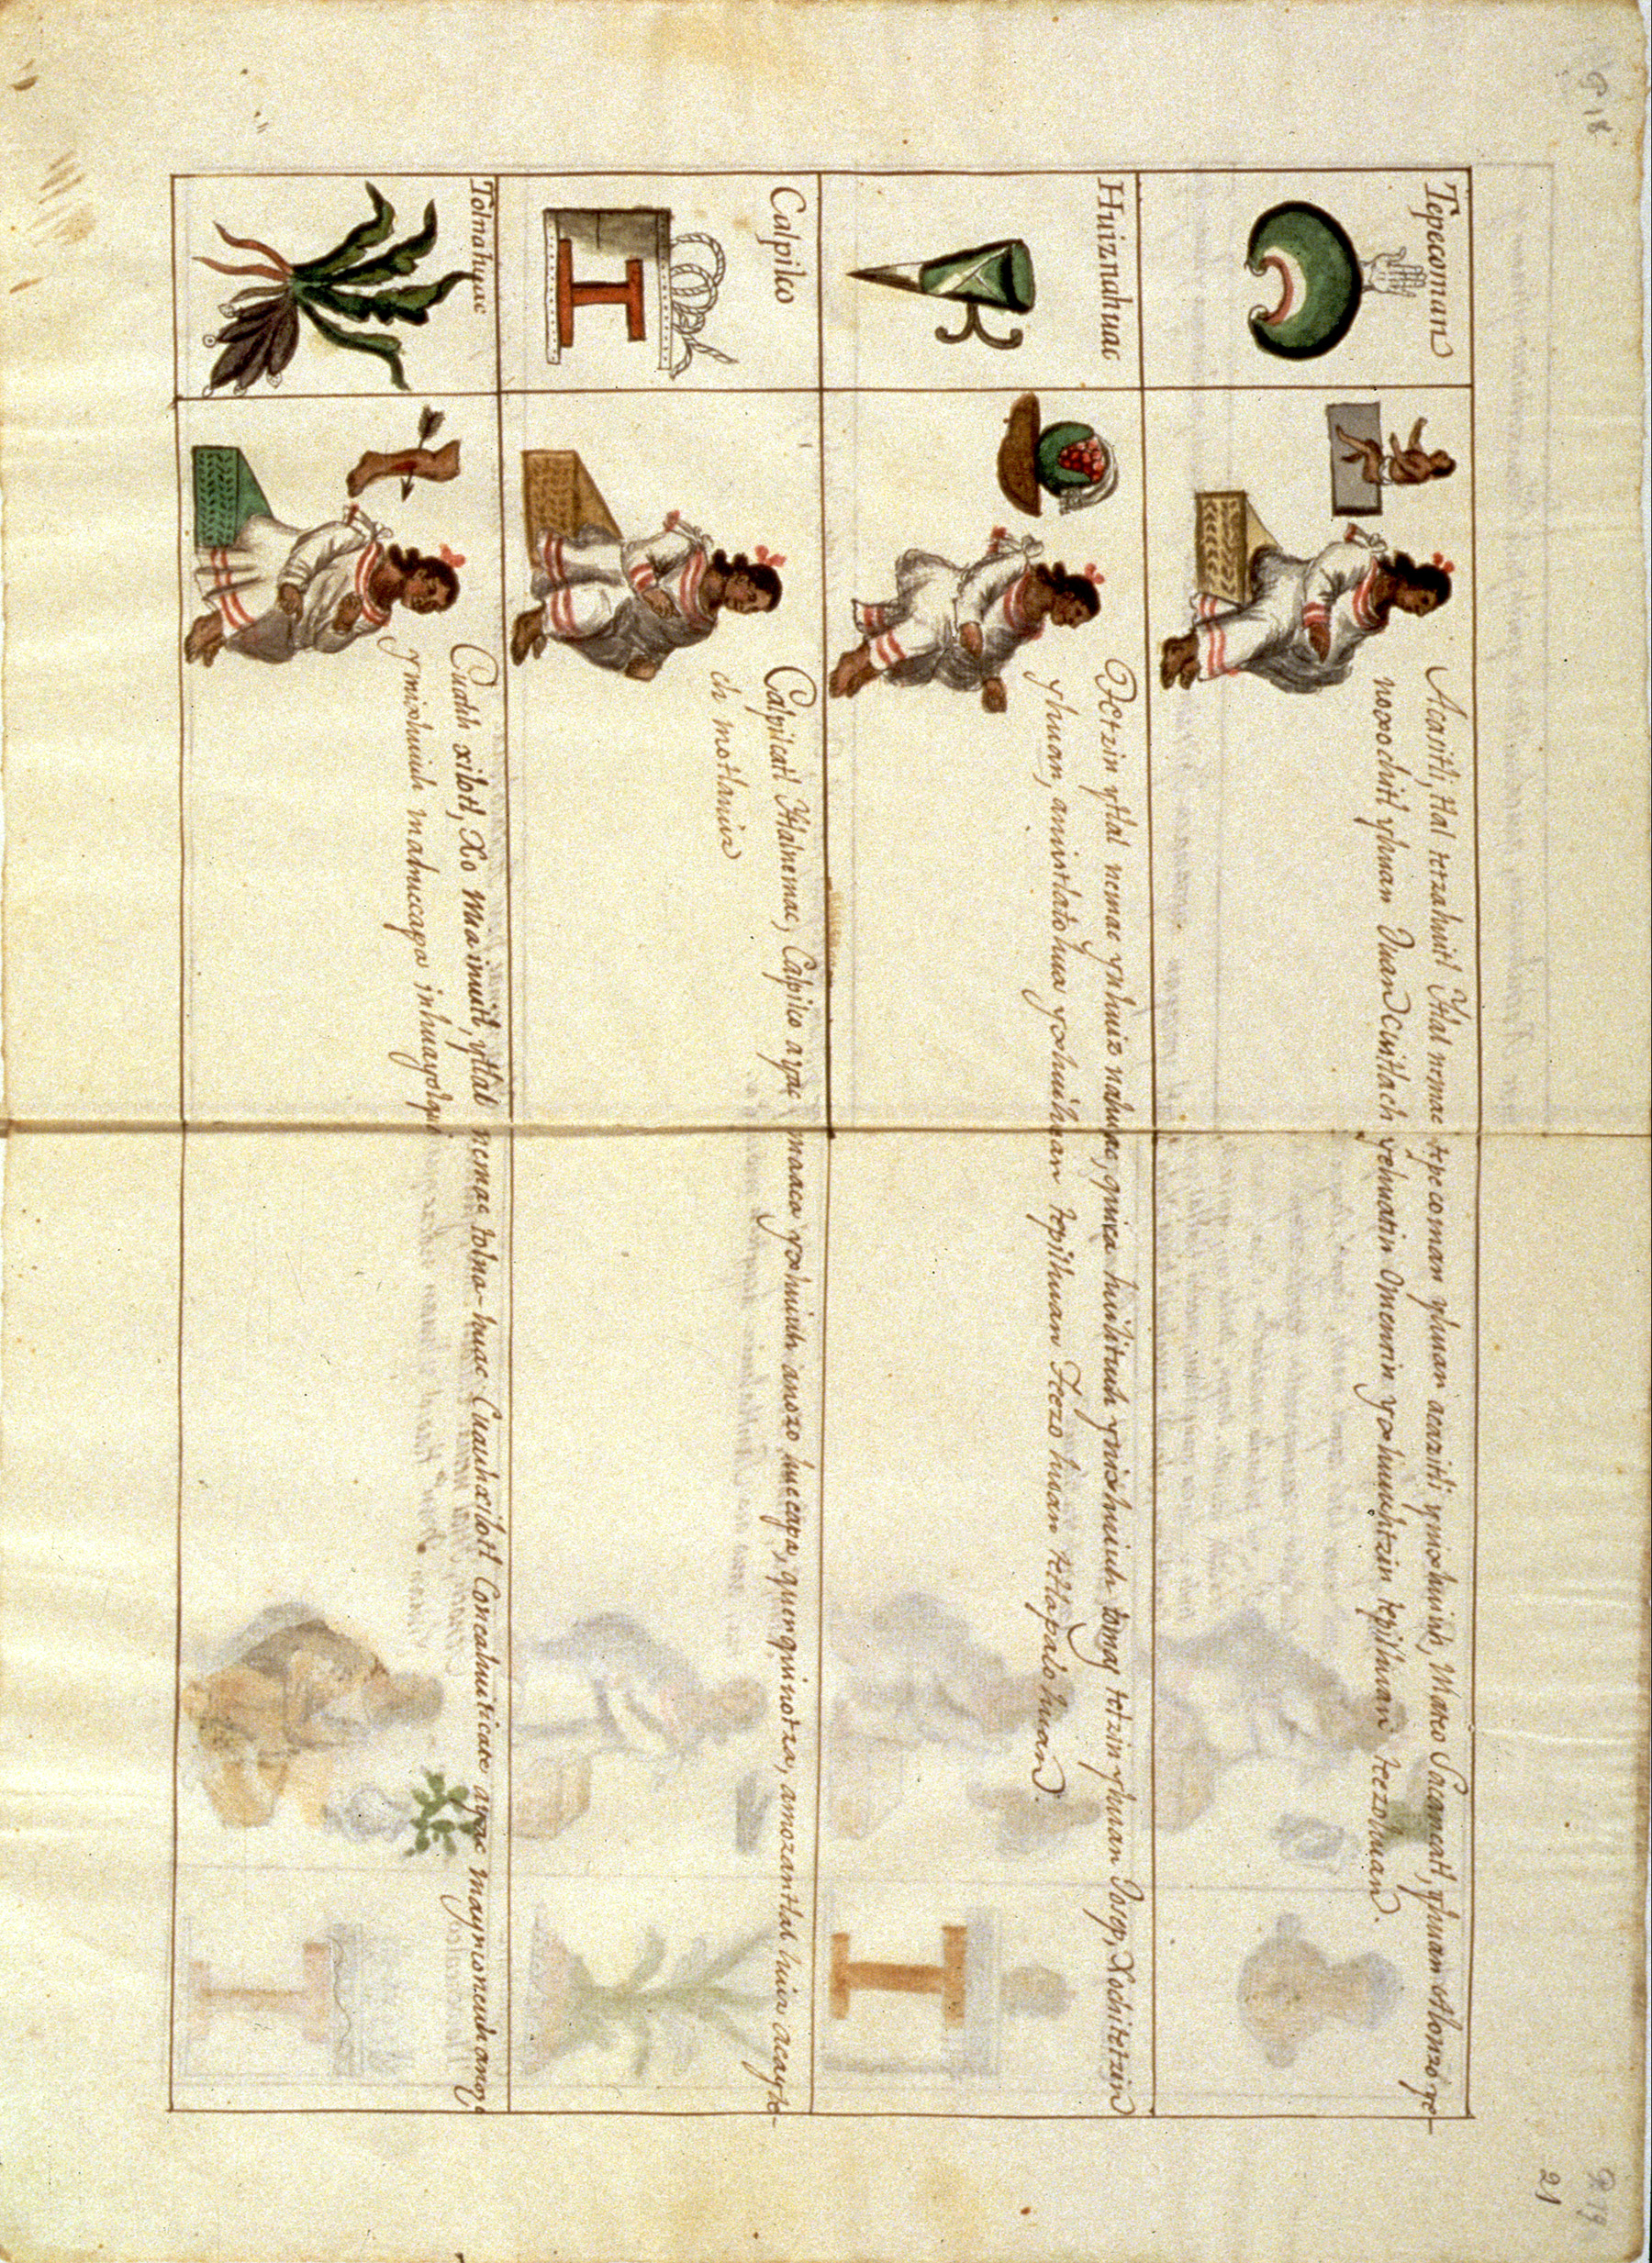 Tepecoman
Acasitli, tlal tetzahuitl Ytlal nemac tepecoman yhuan acazitli ynixhuiuh, Mateo Sacancatl, yhuan Alonzo ye-
noxochitl yhuan Juan Cuitlach yehuatin omentin yxhuiuhtzin tepilhuan teezohuan.
Huiznahuac
Tctzin ytlal nemac ynhuiz nahuac, quica huilitiuh ynixhuiuh tomas tetzin yhuan Josep, Xochitetzin
yhuan, anintlatohua yxhuihuan tepilhuan Teezo huan tetlapalo huan.
Calpilco
Calpilcatl Ytlalnemac, Calpilco ayac maaca yxhuiuh anozo huecapa, quenquinotza, amozantlal huiz acayte-
ch motlaniz
Tolnahuac
Cuauh xilotl, Xo ma imitl, ytlal nemac tolna-huac Cuauhxilotl Concahuiticate ayac mayn coneuh anozo
ymixhuiuh mahuecapa inhuayolqui
P 18
P 19
21